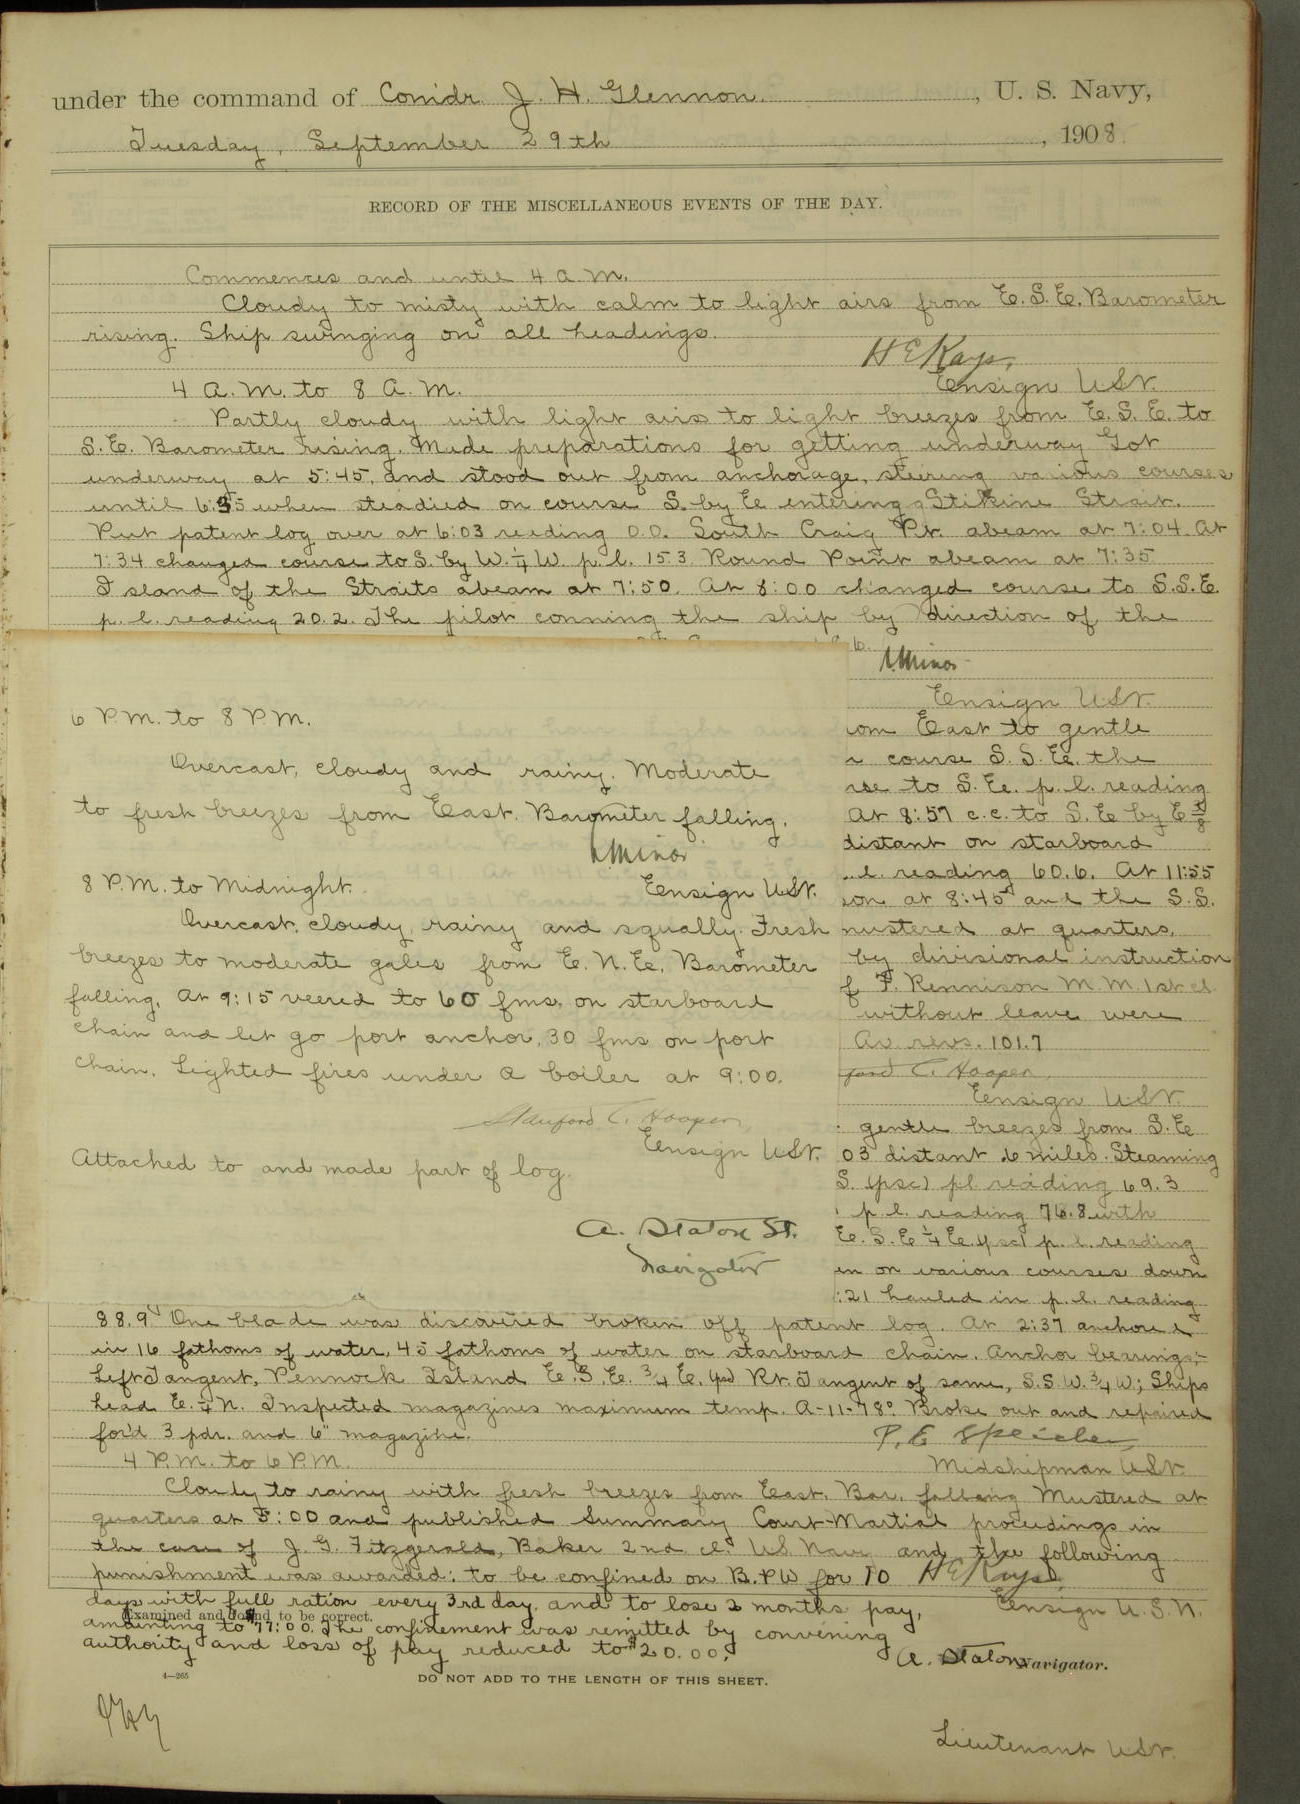 under the command of Comdr. J. H. Glennon. , U. S. Navy,
Tuesday, September 29th , 1908.
RECORD OF THE MISCELLANEOUS EVENTS OF THE DAY.
Commences and until 4 a.m.
Cloudy to misty with calm to light airs from E.S.E. Barometer
rising. Ship swinging on all headings.
H E Kays,
4 A.M. to 8 A.M. Ensign USN.
Partly cloudy with light airs to light breezes from E. S. E. to
S.E. Barometer rising. Made preparations for getting underway Got
underway at 5:45, and stood out from anchorage, steering various courses
until 6:35 when steadied on course S. by E entering Stikine Strait.
Put patent log over at 6:03 reading 0.0. South Craig Pt. abeam at 7:04. At
7:34 changed course to S. by W. 1/4 W. p. l. 15.3. Round Point abeam at 7:35
Island of the Straits abeam at 7:50. At 8:00 changed course to S.S.E.
p. l. reading 20.2. The pilot conning the ship by direction of the
Minor
Ensign USN.
6 P.M. to 8 P.M.
Overcast, cloudy and rainy. Moderate
to fresh breezes from East. Barometer falling.
Minor
8 P.M. to Midnight. Ensign USN.
Overcast, cloudy, rainy and squally. Fresh
breezes to moderate gales from E. N. E. Barometer
falling. At 9:15 veered to 60 fms. on starboard
chain and let go port anchor, 30 fms on port
chain. Lighted fires under A boiler at 9:00.
Stanford C. Hooper,
Ensign USN.
Attached to and made part of log.
A. Staton Lt.
Navigator
om East to gentle
course S. S. E. the
rse to S. E. p. l. reading
At 8:57 c.c. to S. E by E 1/8
distant on starboard
l. reading 60.6. At 11:55
on at 8:45 and the S.S.
mustered at quarters,
by divisional instruction
f F. Rennison M. M. 1st cl.
without leave were
Av. revs. 101.7
ford C. Hooper,
Ensign USN.
gentle breezes from S.E
03 distant 6 miles. Steaming
S. (psc) pl. reading 69.3
p. l. reading 76.8 with
E. S. E 1/4 E. (psc) p. l. reading
en on various courses down
:21 hauled in p. l. reading
88.9 One blade was discovered broken off patent log. At 2:37 anchored
in 16 fathoms of water, 45 fathoms of water on starboard chain. Anchor bearings:-
Left Tangent, Pennock Island E. S. E. 3/4 E. (psc) Rt. Tangent of same, S.S.W. 3/4 W; Ships
head E. 1/4 N. Inspected magazines maximum temp. A-11-78° Broke out and repaired
for'd 3 pdr. and 6" magazine.
P. E Speicher,
4 P.M. to 6 P.M. Midshipman USN.
Cloudy to rainy with fresh breezes from East. Bar. falling Mustered at
quarters at 5:00 and published Summary Court-Martial proceedings in
the case of J. G. Fitzgerald, Baker 2nd cl. US Navy and the following
punishment was awarded: to be confined on B.&W for 10 H E Kays,
days with full ration every 3rd day, and to lose 2 months pay, Ensign U.S.N.
Examined and found to be correct.
amounting to $77:00. The confinement was remitted by convening
authority and loss of pay reduced to $20.00.
A. Staton Navigator.
4—265
DO NOT ADD TO THE LENGTH OF THIS SHEET.
Lieutenant USN.